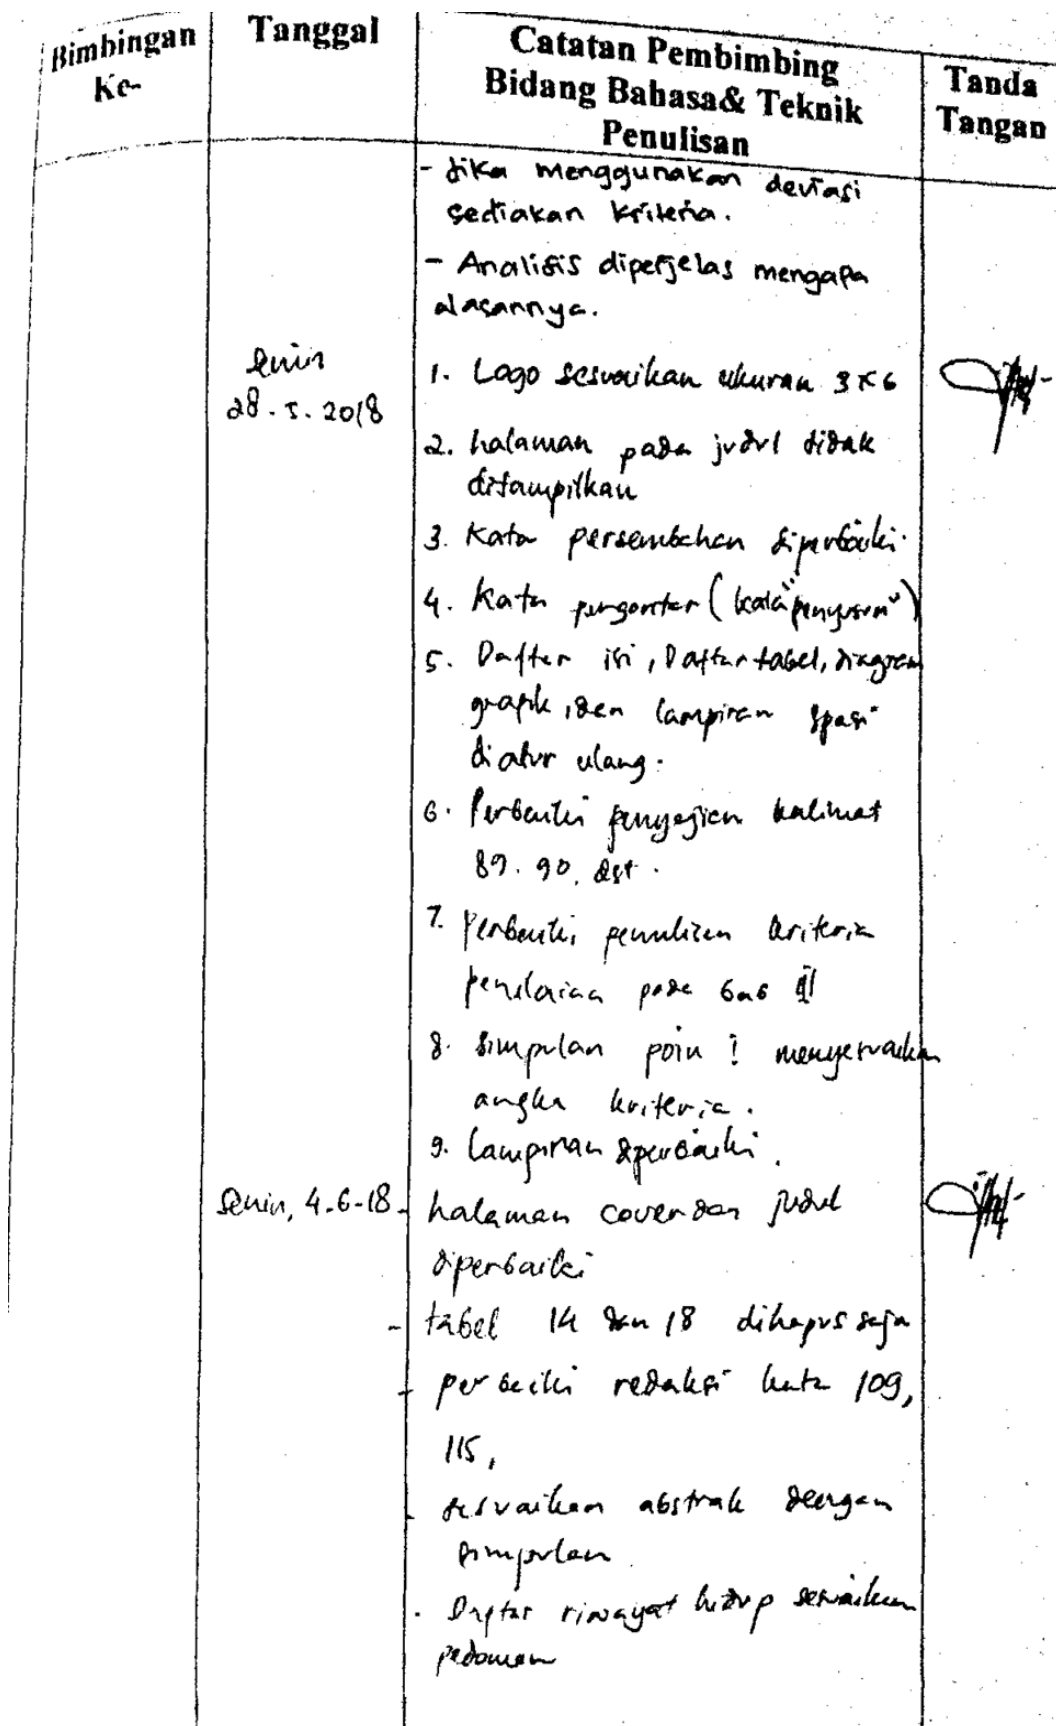 Bimbingan Ke-
Tanggal
Catatan Pembimbing
Bidang Bahasa& Teknik
Penulisan
Tanda
Tangan
- Jika menggunakan deviasi
sediakan kriteria.
- Analisis diperjelas mengapa
alasannya.
Senin
28.5.2018
1. Logo sesuaikan ukuran 3x6
2. halaman pada judul tidak
ditampilkan
3. Kata persembahan diperbaiki.
4. Kata pengantar (kata "penyusun")
5. Daftar isi, Daftar tabel, diagram
grafik, dan lampiran spasi
diatur ulang.
6. Perbaiki penyajian kalimat
89. 90, dst.
7. Perbaiki penulisan kriteria
penilaian pada bab II
8. simpulan poin 1 menyesuaikan
angka kriteria.
9. Lampiran diperbaiki.
Senin, 4.6-18
- halaman cover dan judul
diperbaiki
- tabel 14 dan 18 dihapus saja
- perbaiki redaksi kata 109,
115,
- sesuaikan abstrak dengan
simpulan
- Daftar riwayat hidup sesuaikan
pedoman